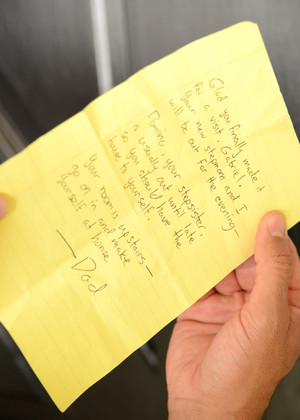 Glad you finally made it
for a visit, Gabriel.
Your new stepmom and I
will be out for the evening—
your stepsister,
is usually out until late
so you should have the
house to yourself.
Your room is upstairs—
go on in and make
yourself at home
— Dad